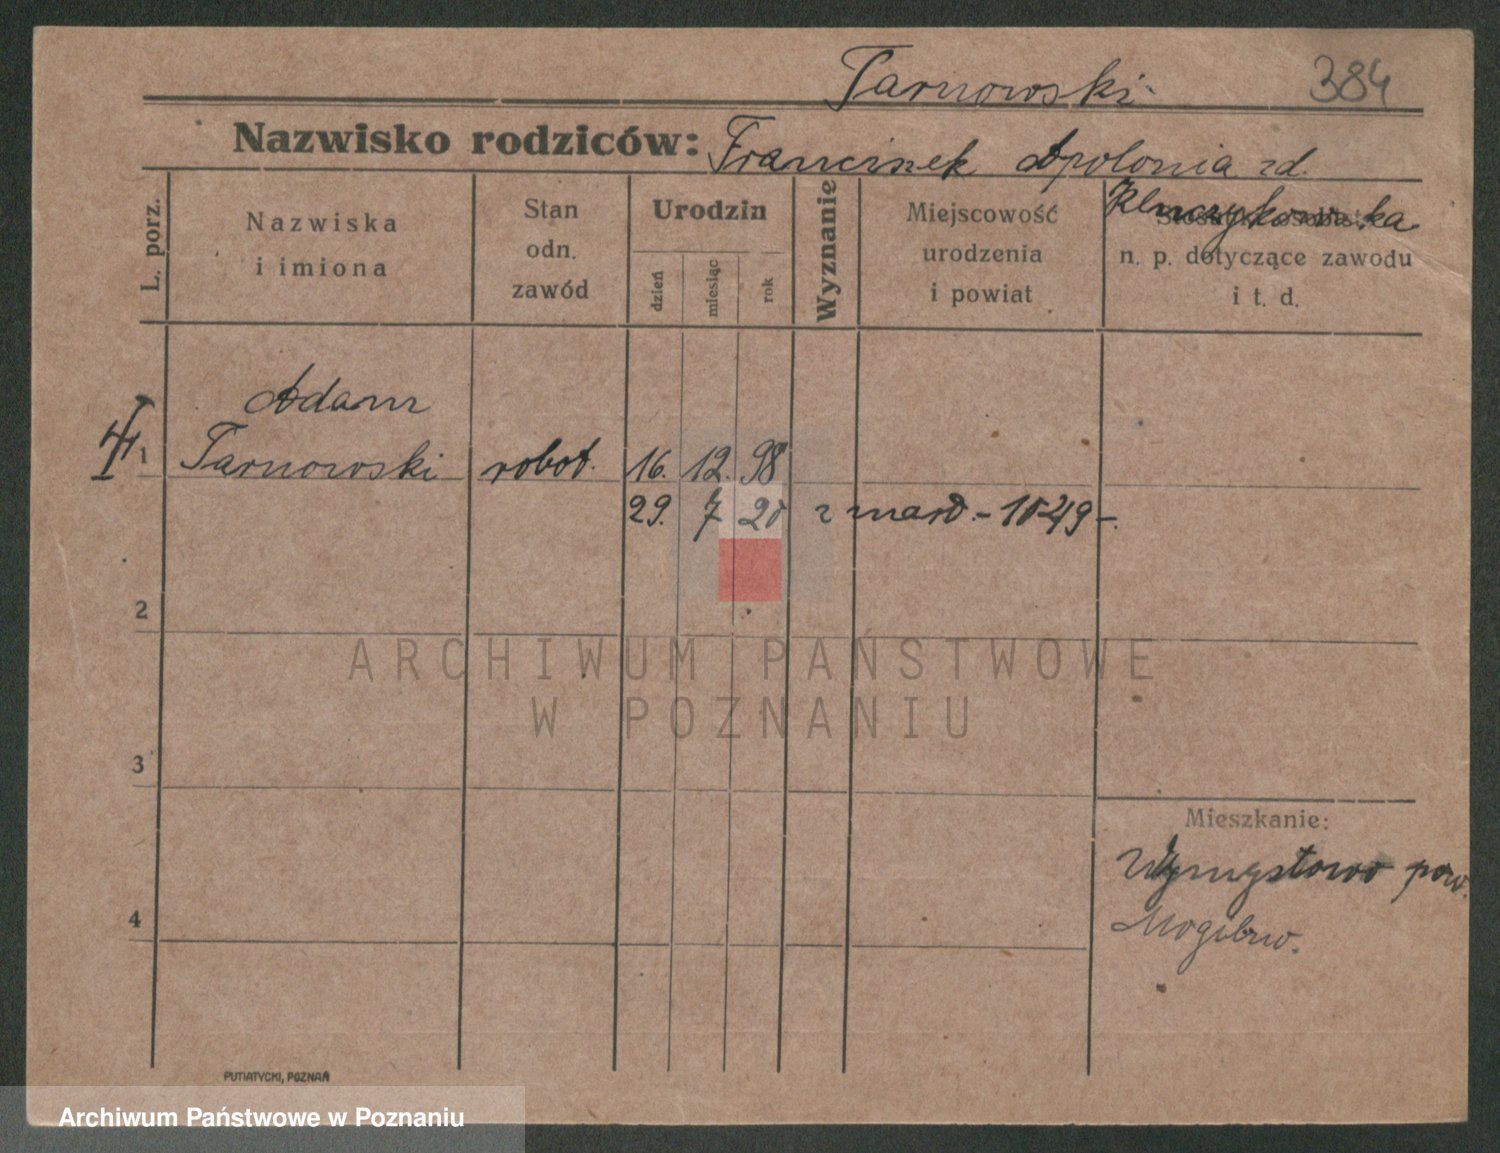 Tarnowski
384
Nazwisko rodziców: Franciszek Apolonia zd.
L. porz.
Nazwiska
i imiona
Stan
odn.
zawód
Urodzin
dzień
miesiąc
rok
Wyznanie
Miejscowość
urodzenia
i powiat
n. p. dotyczące zawodu
i t. d.
Adam
1 Tarnowski robot. 16. 12. 98
29. 7 20 z
2
3
4
Mieszkanie:
pow.
PUTIATYCKI, POZNAŃ
ARCHIWUM PAŃSTWOWE
W POZNANIU
Archiwum Państwowe w Poznaniu